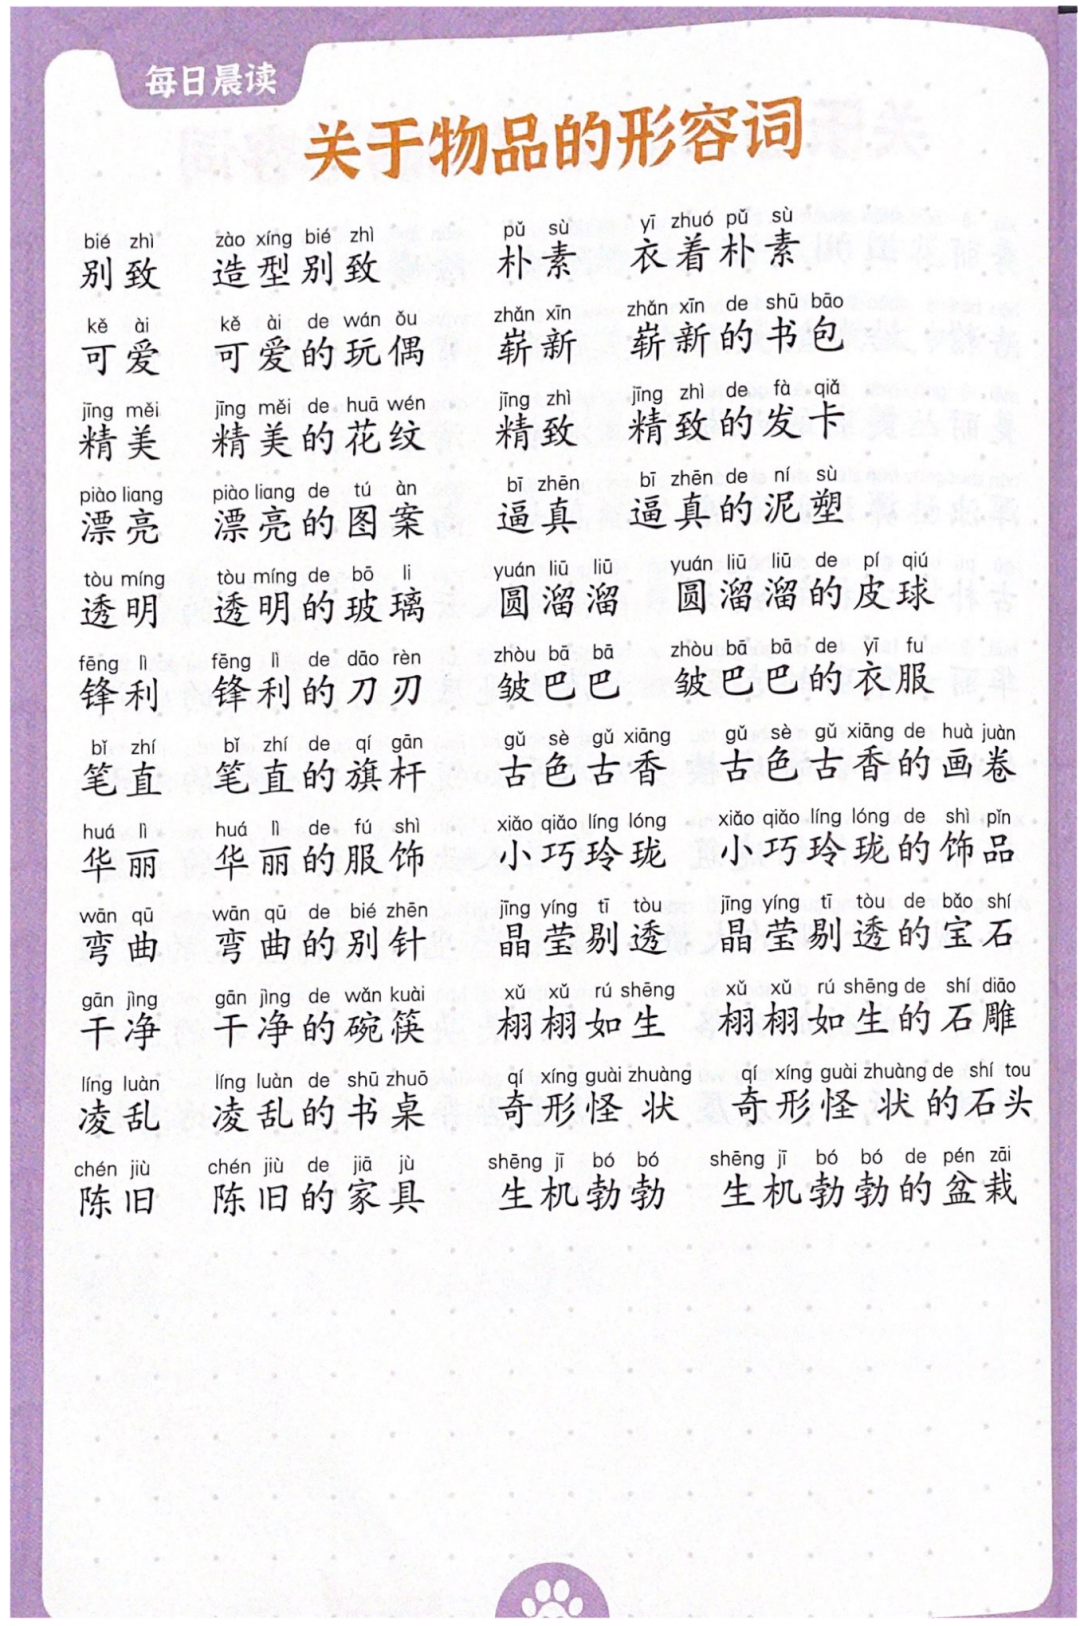 每日晨读
关于物品的形容词
bié zhì zào xíng bié zhì pǔ sù yī zhuó pǔ sù
别致 造型别致 朴素 衣着朴素
kě ài kě ài de wán ǒu zhǎn xīn zhǎn xīn de shū bāo
可爱 可爱的玩偶 崭新 崭新的书包
jīng měi jīng měi de huā wén jīng zhì jīng zhì de fà qiǎ
精美 精美的花纹 精致 精致的发卡
piào liang piào liang de tú àn bī zhēn bī zhēn de ní sù
漂亮 漂亮的图案 逼真 逼真的泥塑
tòu míng tòu míng de bō li yuán liū liū yuán liū liū de pí qiú
透明 透明的玻璃 圆溜溜 圆溜溜的皮球
fēng lì fēng lì de dāo rèn zhòu bā bā zhòu bā bā de yī fu
锋利 锋利的刀刃 皱巴巴 皱巴巴的衣服
bǐ zhí bǐ zhí de qí gān gǔ sè gǔ xiāng gǔ sè gǔ xiāng de huà juàn
笔直 笔直的旗杆 古色古香 古色古香的画卷
huá lì huá lì de fú shì xiǎo qiǎo líng lóng xiǎo qiǎo líng lóng de shì pǐn
华丽 华丽的服饰 小巧玲珑 小巧玲珑的饰品
wān qū wān qū de bié zhēn jīng yíng tī tòu jīng yíng tī tòu de bǎo shí
弯曲 弯曲的别针 晶莹剔透 晶莹剔透的宝石
gān jìng gān jìng de wǎn kuài xǔ xǔ rú shēng xǔ xǔ rú shēng de shí diāo
干净 干净的碗筷 栩栩如生 栩栩如生的石雕
líng luàn líng luàn de shū zhuō qí xíng guài zhuàng qí xíng guài zhuàng de shí tou
凌乱 凌乱的书桌 奇形怪状 奇形怪状的石头
chén jiù chén jiù de jiā jù shēng jī bó bó shēng jī bó bó de pén zāi
陈旧 陈旧的家具 生机勃勃 生机勃勃的盆栽